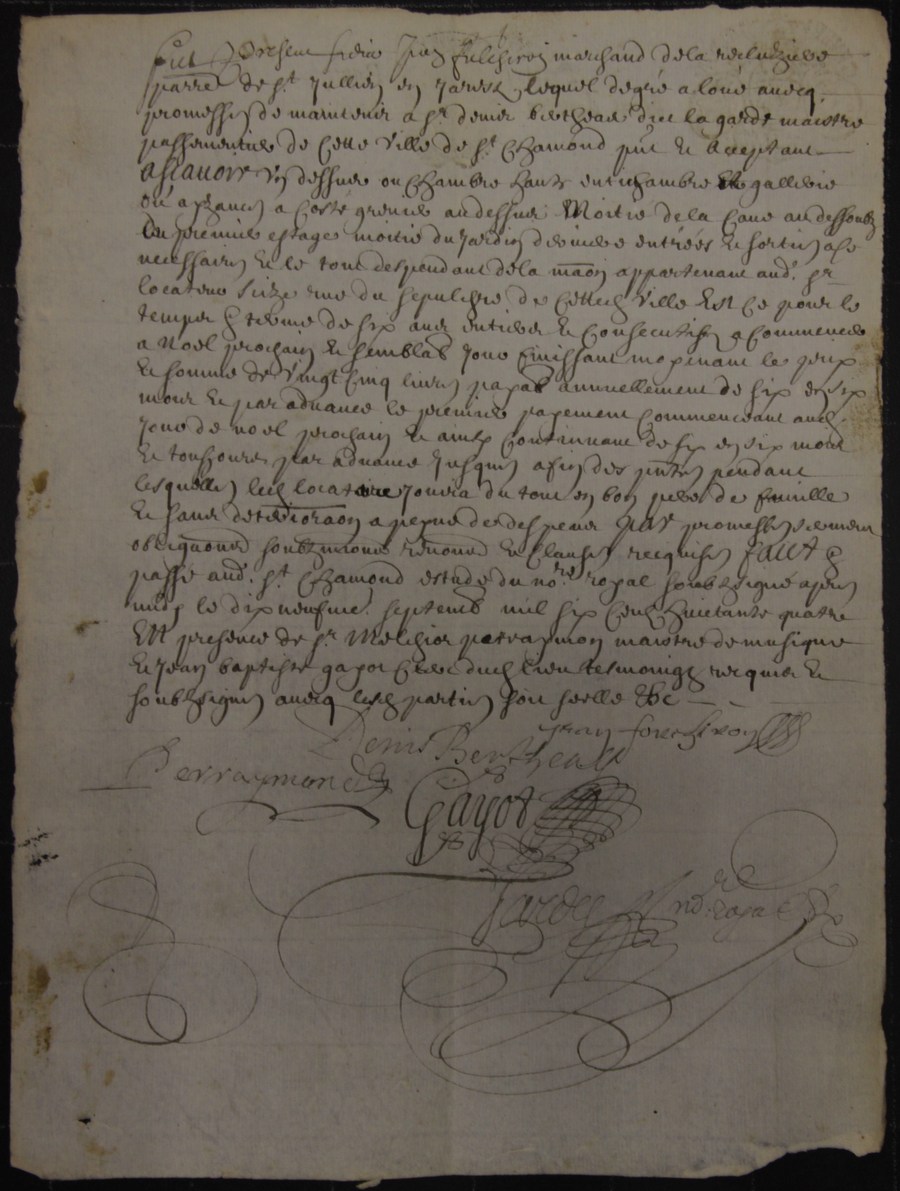 Fut present sieur Jean fulchiron marchand de la
parr.e de st Jullien en Jarestz lequel de gré a loué avecq
promesses de maintenir a sr denis bertheas dict la garde maistre
passementier de Cette Ville de st Chamond pnt et acceptant
ascavoir Un dessus ou Chambre haute antichambre et gallerie
a Costé grenier au dessus Moitié de la Cave au dessoubz
du premier estage moitié du Jardin derriere entrées et sorties
necessaires et le tout despendant de la maon appartenant aud. sr
locateur size rue du sepulchre de Cetted. Ville Est Ce pour le
temps & terme de six ans entiers et Consecutifs a Commencer
a Noel prochain et semblab. Jour finissant moyenant le prix
et somme de Vingt Cinq livres payab. annuellement de six en six
mois et par advance le premier payement Commenceant aud.
Jour de noel prochain et ainsy Continuant de six en six mois
et tousjours par advance Jusques a fin des pntes pendant
lesquelles led. locataire Jouira du tout en bon pere de famille
et sans deterioraon a peyne de despens par promesses serment
obligaons soubzmaons renonaons et Clauses requises faict &
passé aud. st Chamond estude du nore royal soubzsigné apres
midy le dix neufme septemb. mil six Cens huictante quatre
En presence de sr Melchior perraymon maistre de musique
et Jean baptiste gayot Clerc dud. lieu tesmoings requis et
soubzsignes avecq lesd. parties soit scellé &c
Jean foulchiron
Denis Bertheas
Perraymond
Gayot
nore royal